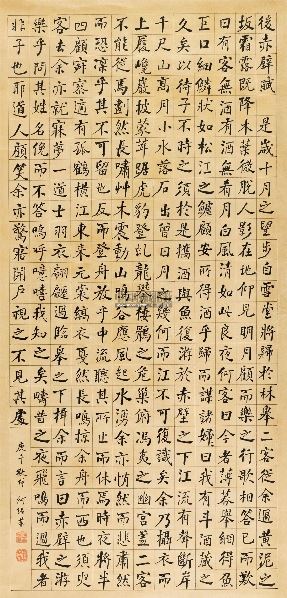 後赤壁賦 是歲十月之望步自雪堂將歸於林皋二客從余過黃泥之
坂霜露既降木葉微脫人影在地仰見明月顧而樂之行歌相答已而歎
曰有客無酒有酒無肴月白風清如此良夜何客曰今者薄暮舉網得魚
巨口細鱗狀如松江之鱸顧安所得酒乎歸而謀諸婦〻曰我有斗酒藏之
久矣以待子不時之須於是攜酒與魚復游於赤壁之下江流有聲斷岸
千尺山高月小水落石出曾日月之幾何而江山不可復識矣余乃攝衣而
上履巉巖披蒙茸踞虎豹登虬龍攀棲鶻之危巢俯馮夷之幽宮蓋二客
不能從焉劃然長嘯艸木震動山鳴谷應風起水涌余亦悄然而悲肅然
而恐凜乎其不可留也反而登舟放乎中流聽其所止而休焉時夜將半
四顧寂寥適有孤鶴橫江東來元裳縞衣戛然長鳴掠余舟而西也須臾
客去余亦就寐夢一道士羽衣翩躚過臨皋之下揖余而言曰赤壁之游
樂乎問其姓名俛而不答嗚呼噫嘻我知之矣疇昔之夜飛鳴而過我者
非子也耶道人顧笑余亦驚寤開戶視之不見其處 庚午秋仲 何紹基